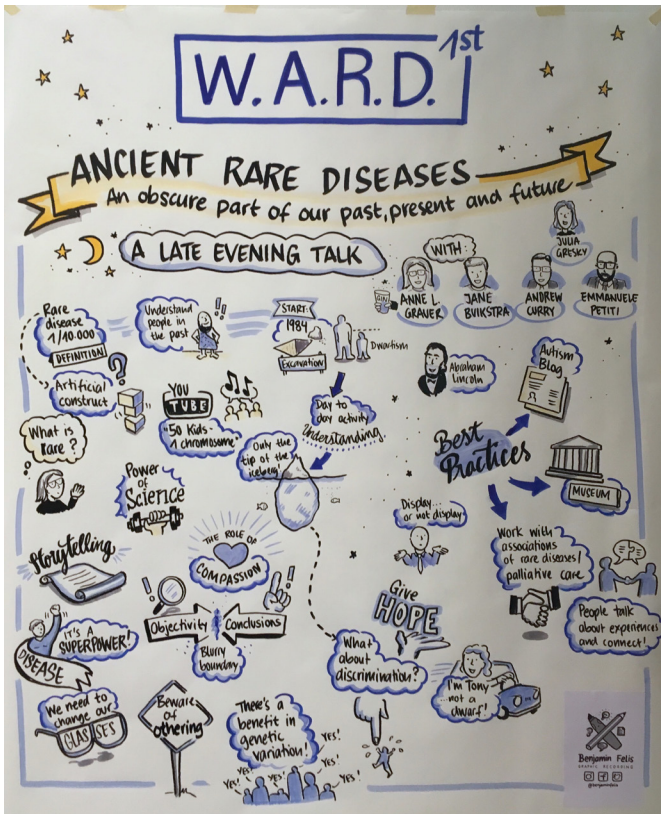 W.A.R.D. 1st
ANCIENT RARE DISEASES
An obscure part of our past, present and future
A LATE EVENING TALK
WITH:
JULIA
GRESKY
ANNE L.
GRAUER
JANE
BUIKSTRA
ANDREW
CURRY
EMMANUELE
PETITI
Rare
disease
1/10.000
DEFINITION
?
Artificial
construct
Understand
people in
the past
!!
START:
1984
Excavation
Dwarfism
Abraham
Lincoln
Autism
Blog
What is
Rare?
YOU
TUBE
"50 Kids-
1 chromosome"
Day to
day activity
Understanding
Only the
tip of the
iceberg!
Best
Practices
MUSEUM
Power
of
Science
Display...
or not display
Work with
associations
of rare diseases/
palliative care
Storytelling
THE ROLE OF
COMPASSION
Give
HOPE
People talk
about experiences
and connect!
IT'S A
SUPERPOWER!
DISEASE
!
Objectivity
Conclusions
!
Blurry
boundary
What
about
discrimination?
I'm Tony
...not a
dwarf!
We need to
change our
GLASSES
Beware
of
othering
There's a
benefit in
genetic
variation!
YES!
YES!
YES!
YES!
YES!
Benjamin Felis
GRAPHIC RECORDING
@benjaminfelis